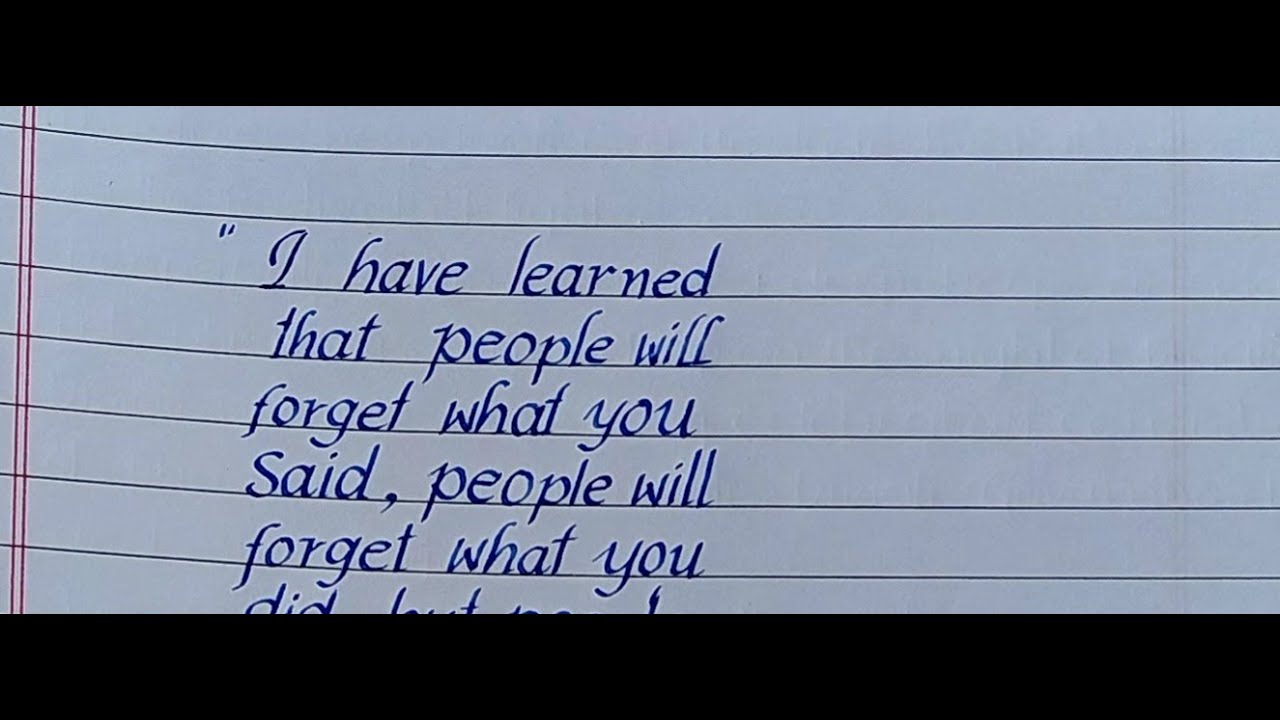 " I have learned
that people will
forget what you
Said, people will
forget what you
did but